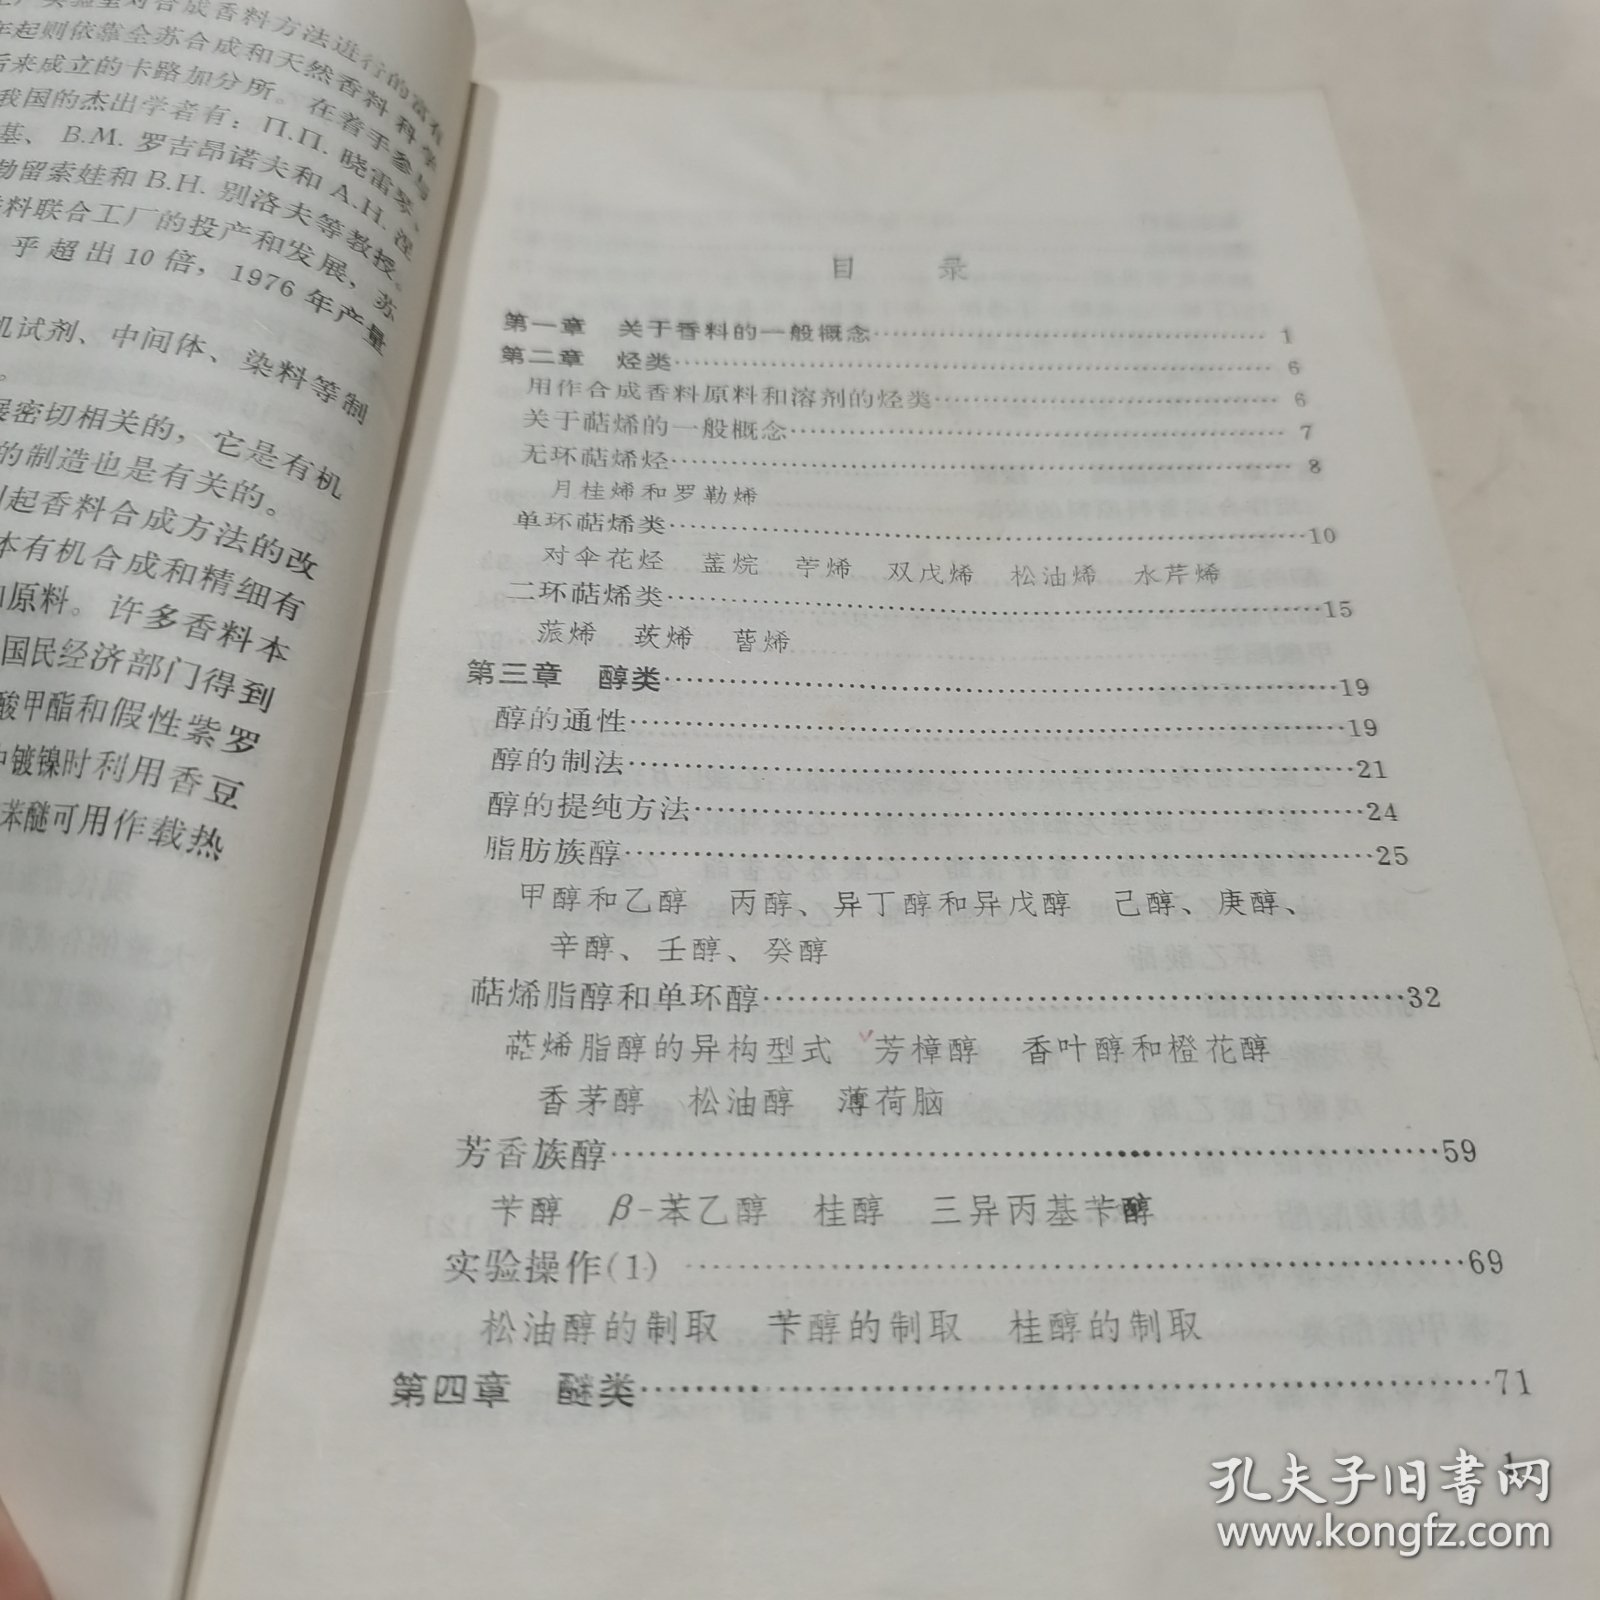 实验室对合成香料方法进行的富有
年起则依靠全苏合成和天然香料科学
后来成立的卡路加分所。在着手参与
我国的杰出学者有：П.П. 晓雷琴、
基、B.M. 罗吉昂诺夫和 A.H. 涅
勒留索娃和 B.H. 别洛夫等教授。
料联合工厂的投产和发展，苏
乎超出10倍，1976年产量
机试剂、中间体、染料等制
。
展密切相关的，它是有机
的制造也是有关的。
引起香料合成方法的改
本有机合成和精细有
原料。许多香料本
国民经济部门得到
酸甲酯和假性紫罗
中镀镍时利用香豆
苯醚可用作载热
目 录
第一章 关于香料的一般概念……1
第二章 烃类……6
用作合成香料原料和溶剂的烃类……6
关于萜烯的一般概念……7
无环萜烯烃……8
月桂烯和罗勒烯
单环萜烯类……10
对伞花烃 䓝烷 苧烯 双戊烯 松油烯 水芹烯
二环萜烯类……15
蒎烯 莰烯 蒈烯
第三章 醇类……19
醇的通性……19
醇的制法……21
醇的提纯方法……24
脂肪族醇……25
甲醇和乙醇 丙醇、异丁醇和异戊醇 己醇、庚醇、
辛醇、壬醇、癸醇
萜烯脂醇和单环醇……32
萜烯脂醇的异构型式 芳樟醇 香叶醇和橙花醇
香茅醇 松油醇 薄荷脑
芳香族醇……59
苄醇 β-苯乙醇 桂醇 三异丙基苄醇
实验操作(1)……69
松油醇的制取 苄醇的制取 桂醇的制取
第四章 醚类……71
1
孔夫子旧书网
www.kongfz.com